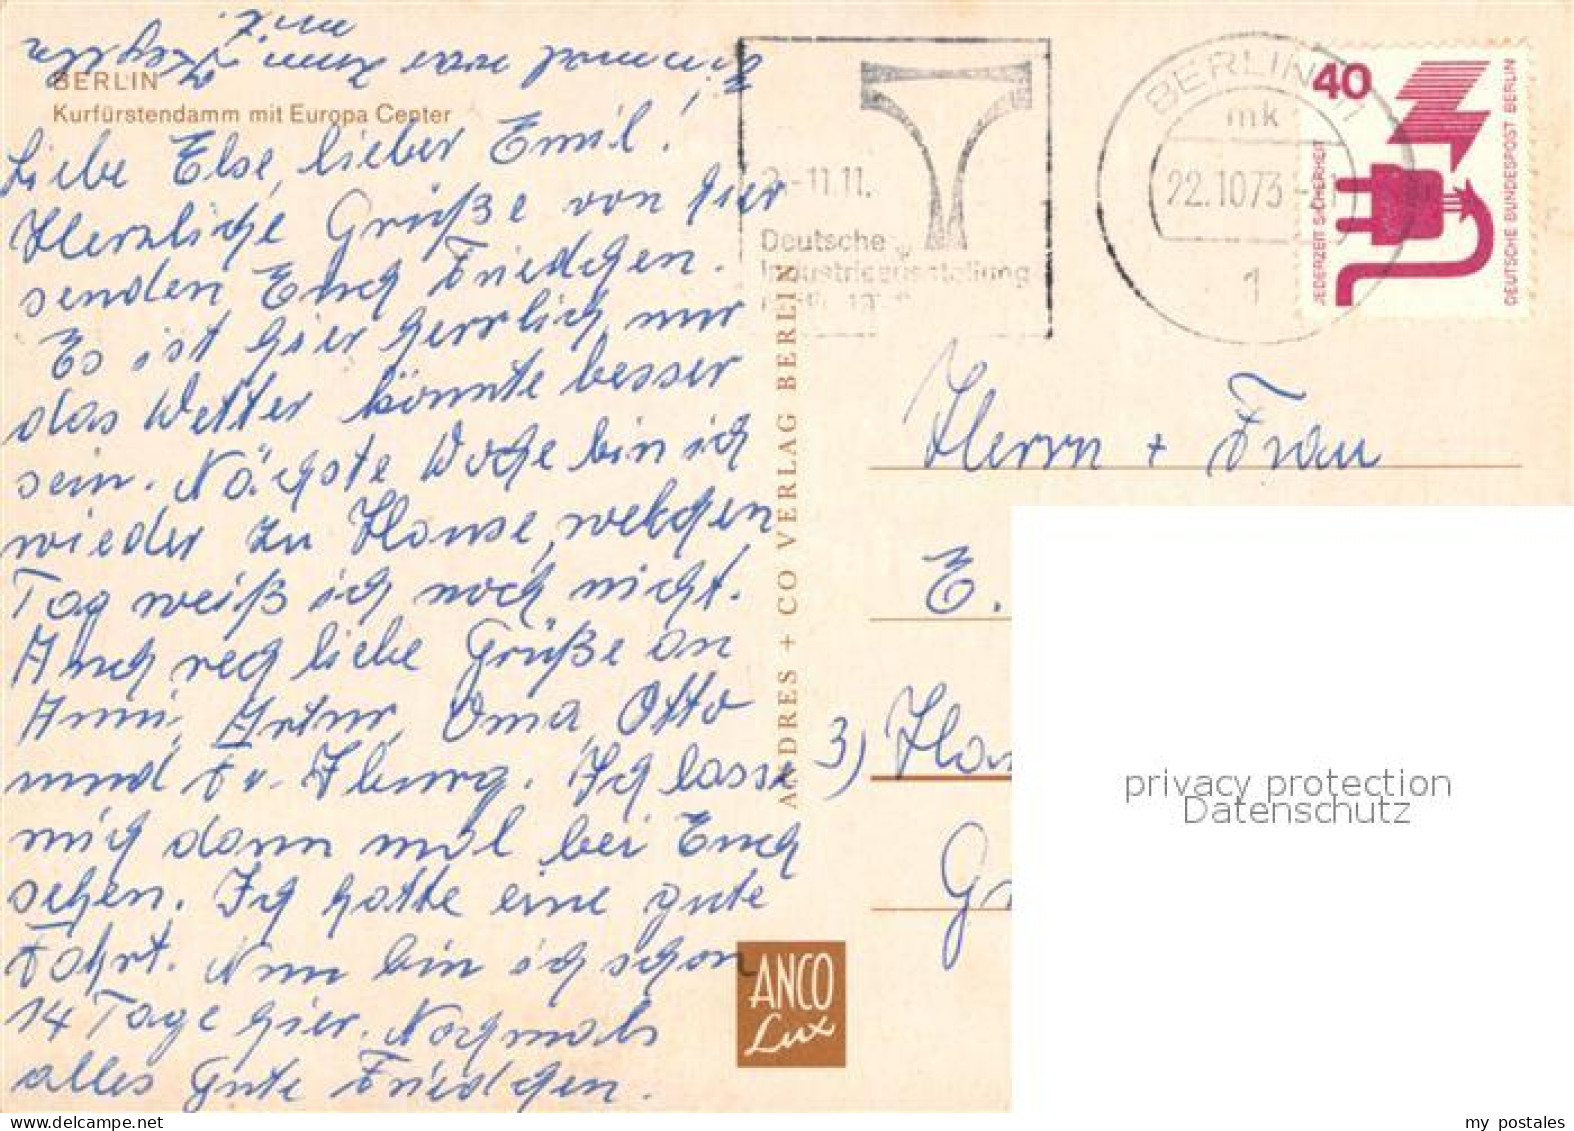 BERLIN
Kurfürstendamm mit Europa Center
Liebe Else, lieber Emil!
Herzliche Grüße von hier
senden Euch Friedchen.
Es ist hier herrlich, nur
das Wetter könnte besser
sein. Nächste Woche bin ich
wieder zu Hause, welchen
Tag weiß ich noch nicht.
Auch rech liebe Grüße an
Anni, Artur, Oma, Otto
und Fr. Iburg. Ich lasse
mich dann mal bei Euch
sehen. Ich hatte eine gute
Fahrt. Nun bin ich schon
14 Tage hier. Nochmals
alles Gute Friedchen.
Einmal war Zum Kegeln
mit.
ANDRES + CO VERLAG BERLIN
ANCO
Lux
-11.11.
Deutsche
Industrieausstellung
BERLIN
mk
22.10.73
1
40
JEDERZEIT SICHERHEIT
DEUTSCHE BUNDESPOST BERLIN
Herrn + Frau
E.
3)
privacy protection
Datenschutz
my postales